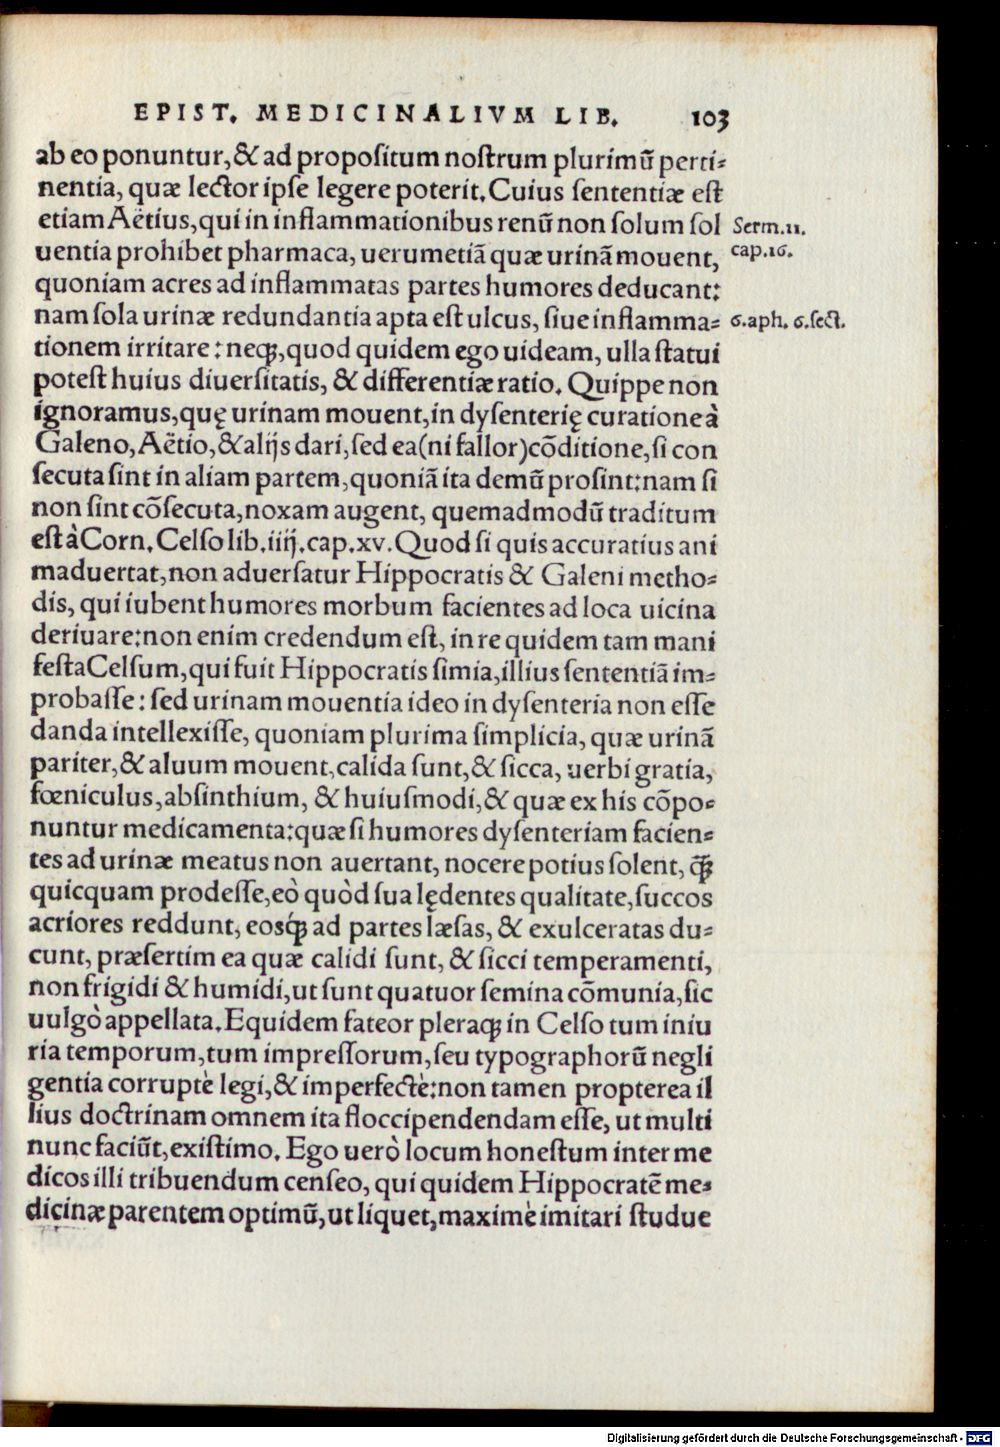 EPIST. MEDICINALIVM LIB. 103
ab eo ponuntur,& ad propositum nostrum plurimũ perti-
nentia, quæ lector ipse legere poterit. Cuius sententiæ est
etiam Aëtius, qui in inflammationibus renũ non solum sol
Serm.11.
uentia prohibet pharmaca, uerumetiã quæ urinã mouent,
cap.16.
quoniam acres ad inflammatas partes humores deducant:
nam sola urinæ redundantia apta est ulcus, siue inflamma-
6.aph. 6.sect.
tionem irritare: neqꝫ, quod quidem ego uideam, ulla statui
potest huius diuersitatis, & differentiæ ratio. Quippe non
ignoramus, quę urinam mouent, in dysenterię curatione à
Galeno, Aëtio, & alijs dari, sed ea (ni fallor) cõditione, si con
secuta sint in aliam partem, quoniã ita demũ prosint: nam si
non sint cõsecuta, noxam augent, quemadmodũ traditum
est à Corn. Celso lib.iiij.cap.xv. Quod si quis accuratius ani
maduertat, non aduersatur Hippocratis & Galeni metho-
dis, qui iubent humores morbum facientes ad loca uicina
deriuare: non enim credendum est, in re quidem tam mani
festa Celsum, qui fuit Hippocratis simia, illius sententiã im-
probasse: sed urinam mouentia ideo in dysenteria non esse
danda intellexisse, quoniam plurima simplicia, quæ urinã
pariter, & aluum mouent, calida sunt, & sicca, uerbi gratia,
fœniculus, absinthium, & huiusmodi, & quæ ex his cõpo-
nuntur medicamenta: quæ si humores dysenteriam facien-
tes ad urinæ meatus non auertant, nocere potius solent, q̃ꝫ
quicquam prodesse, eò quòd sua lędentes qualitate, succos
acriores reddunt, eosq́ꝫ ad partes læsas, & exulceratas du-
cunt, præsertim ea quæ calidi sunt, & sicci temperamenti,
non frigidi & humidi, ut sunt quatuor semina cõmunia, sic
uulgò appellata. Equidem fateor pleraqꝫ in Celso tum iniu
ria temporum, tum impressorum, seu typographorũ negli
gentia corruptè legi, & imperfectè: non tamen propterea il
lius doctrinam omnem ita floccipendendam esse, ut multi
nunc faciũt, existimo. Ego uerò locum honestum inter me
dicos illi tribuendum censeo, qui quidem Hippocratẽ me-
dicinæ parentem optimũ, ut liquet, maximè imitari studue
Digitalisierung gefördert durch die Deutsche Forschungsgemeinschaft - DFG